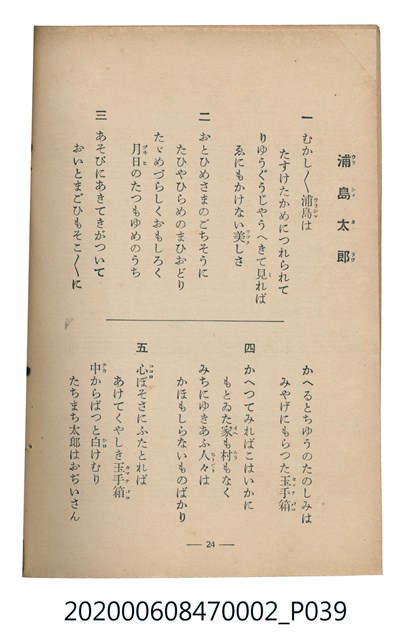 浦島太郎
一 むかし〱浦島は
たすけたかめにつれられて
りゆうぐうじやうへきて見れば
ゑにもかけない美しさ
二 おとひめさまのごちそうに
たひやひらめのまひおどり
たゞめづらしくおもしろく
月日のたつもゆめのうち
三 あそびにあきてきがついて
おいとまごひもそこ〱に
かへるとちゆうのたのしみは
みやげにもらつた玉手箱
四 かへつてみればこはいかに
もとゐた家も村もなく
みちにゆきあふ人々は
かほもしらないものばかり
五 心ぼそさにふたとれば
あけてくやしき玉手箱
中からぱつと白けむり
たちまち太郎はおぢいさん
— 24 —
202000608470002_P039